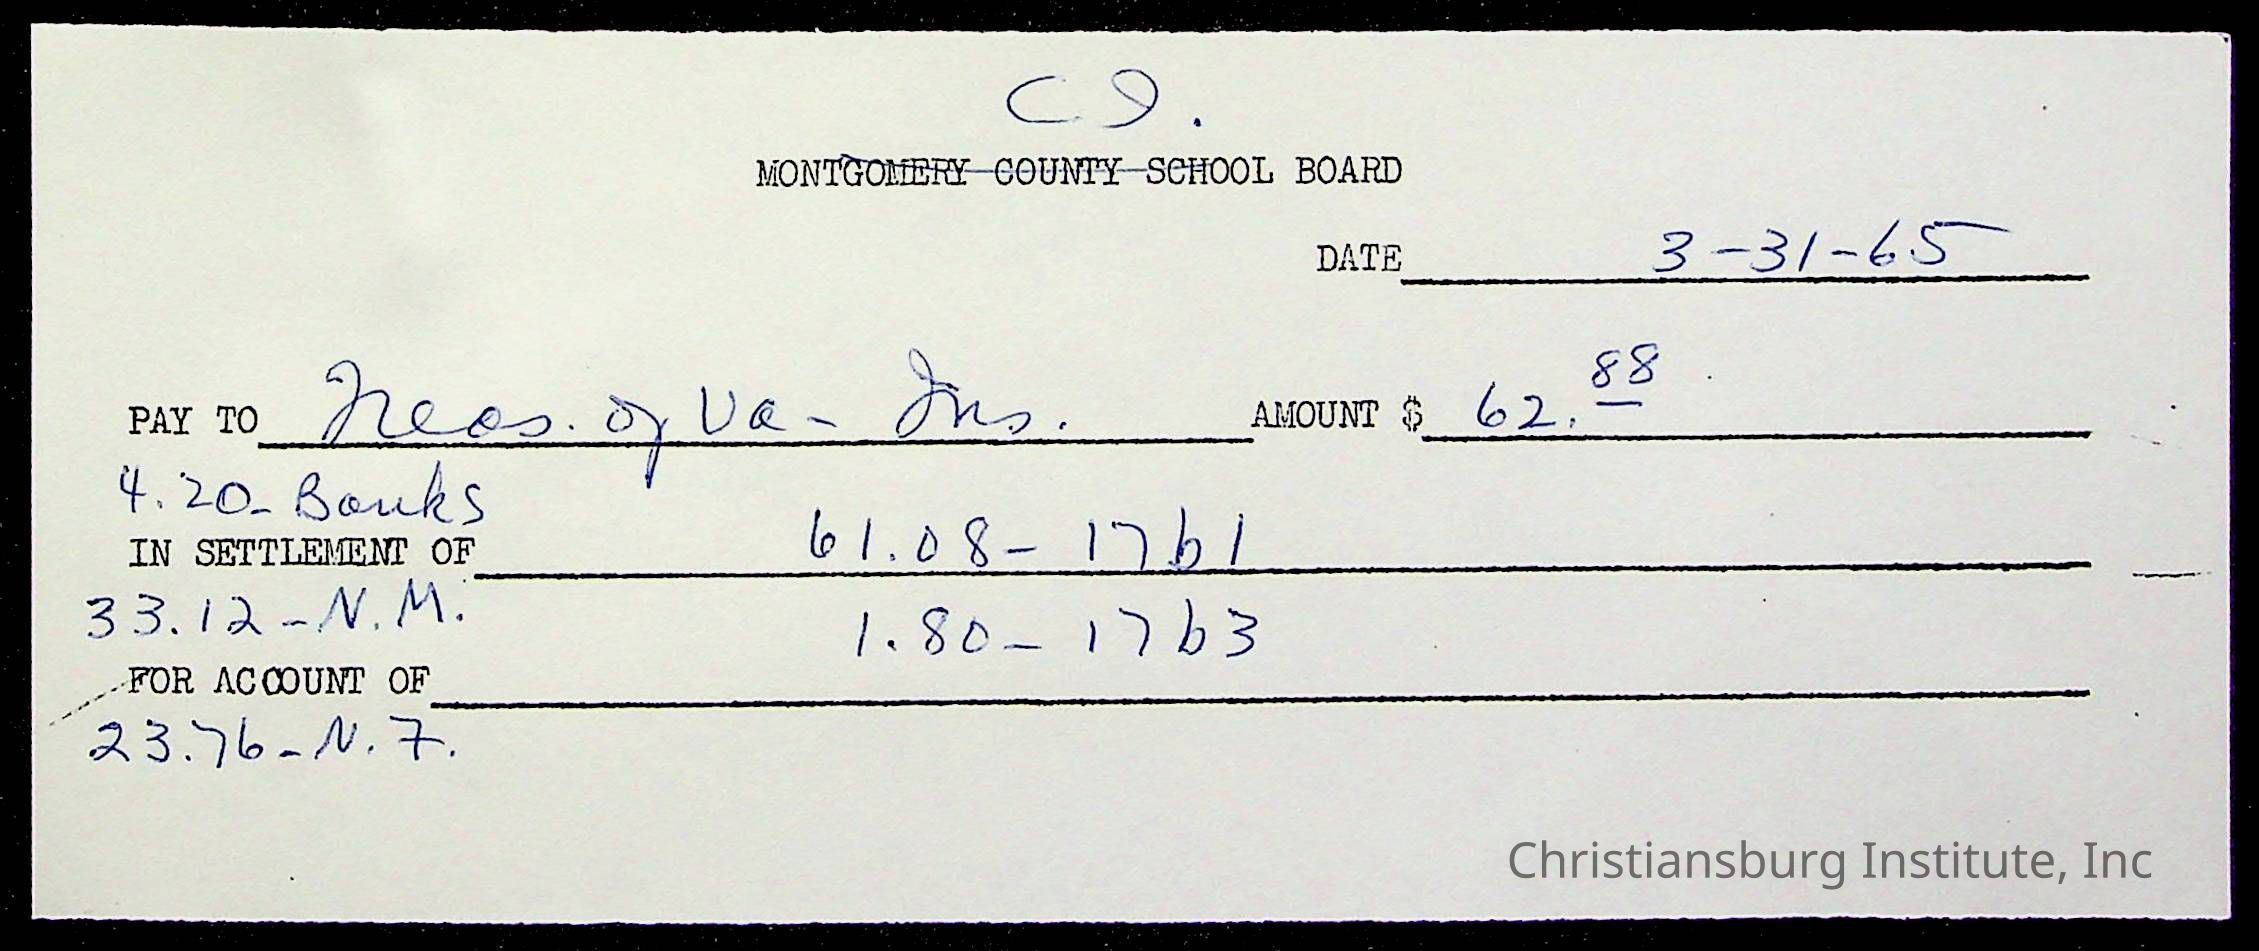 C I.
MONTGOMERY COUNTY SCHOOL BOARD
DATE 3-31-65
PAY TO Treas. of Va - Ins. AMOUNT $ 62.88
4.20 - Banks
IN SETTLEMENT OF 61.08 - 1761
33.12 - N.M. 1.80 - 1763
FOR ACCOUNT OF
23.76 - N.F.
Christiansburg Institute, Inc